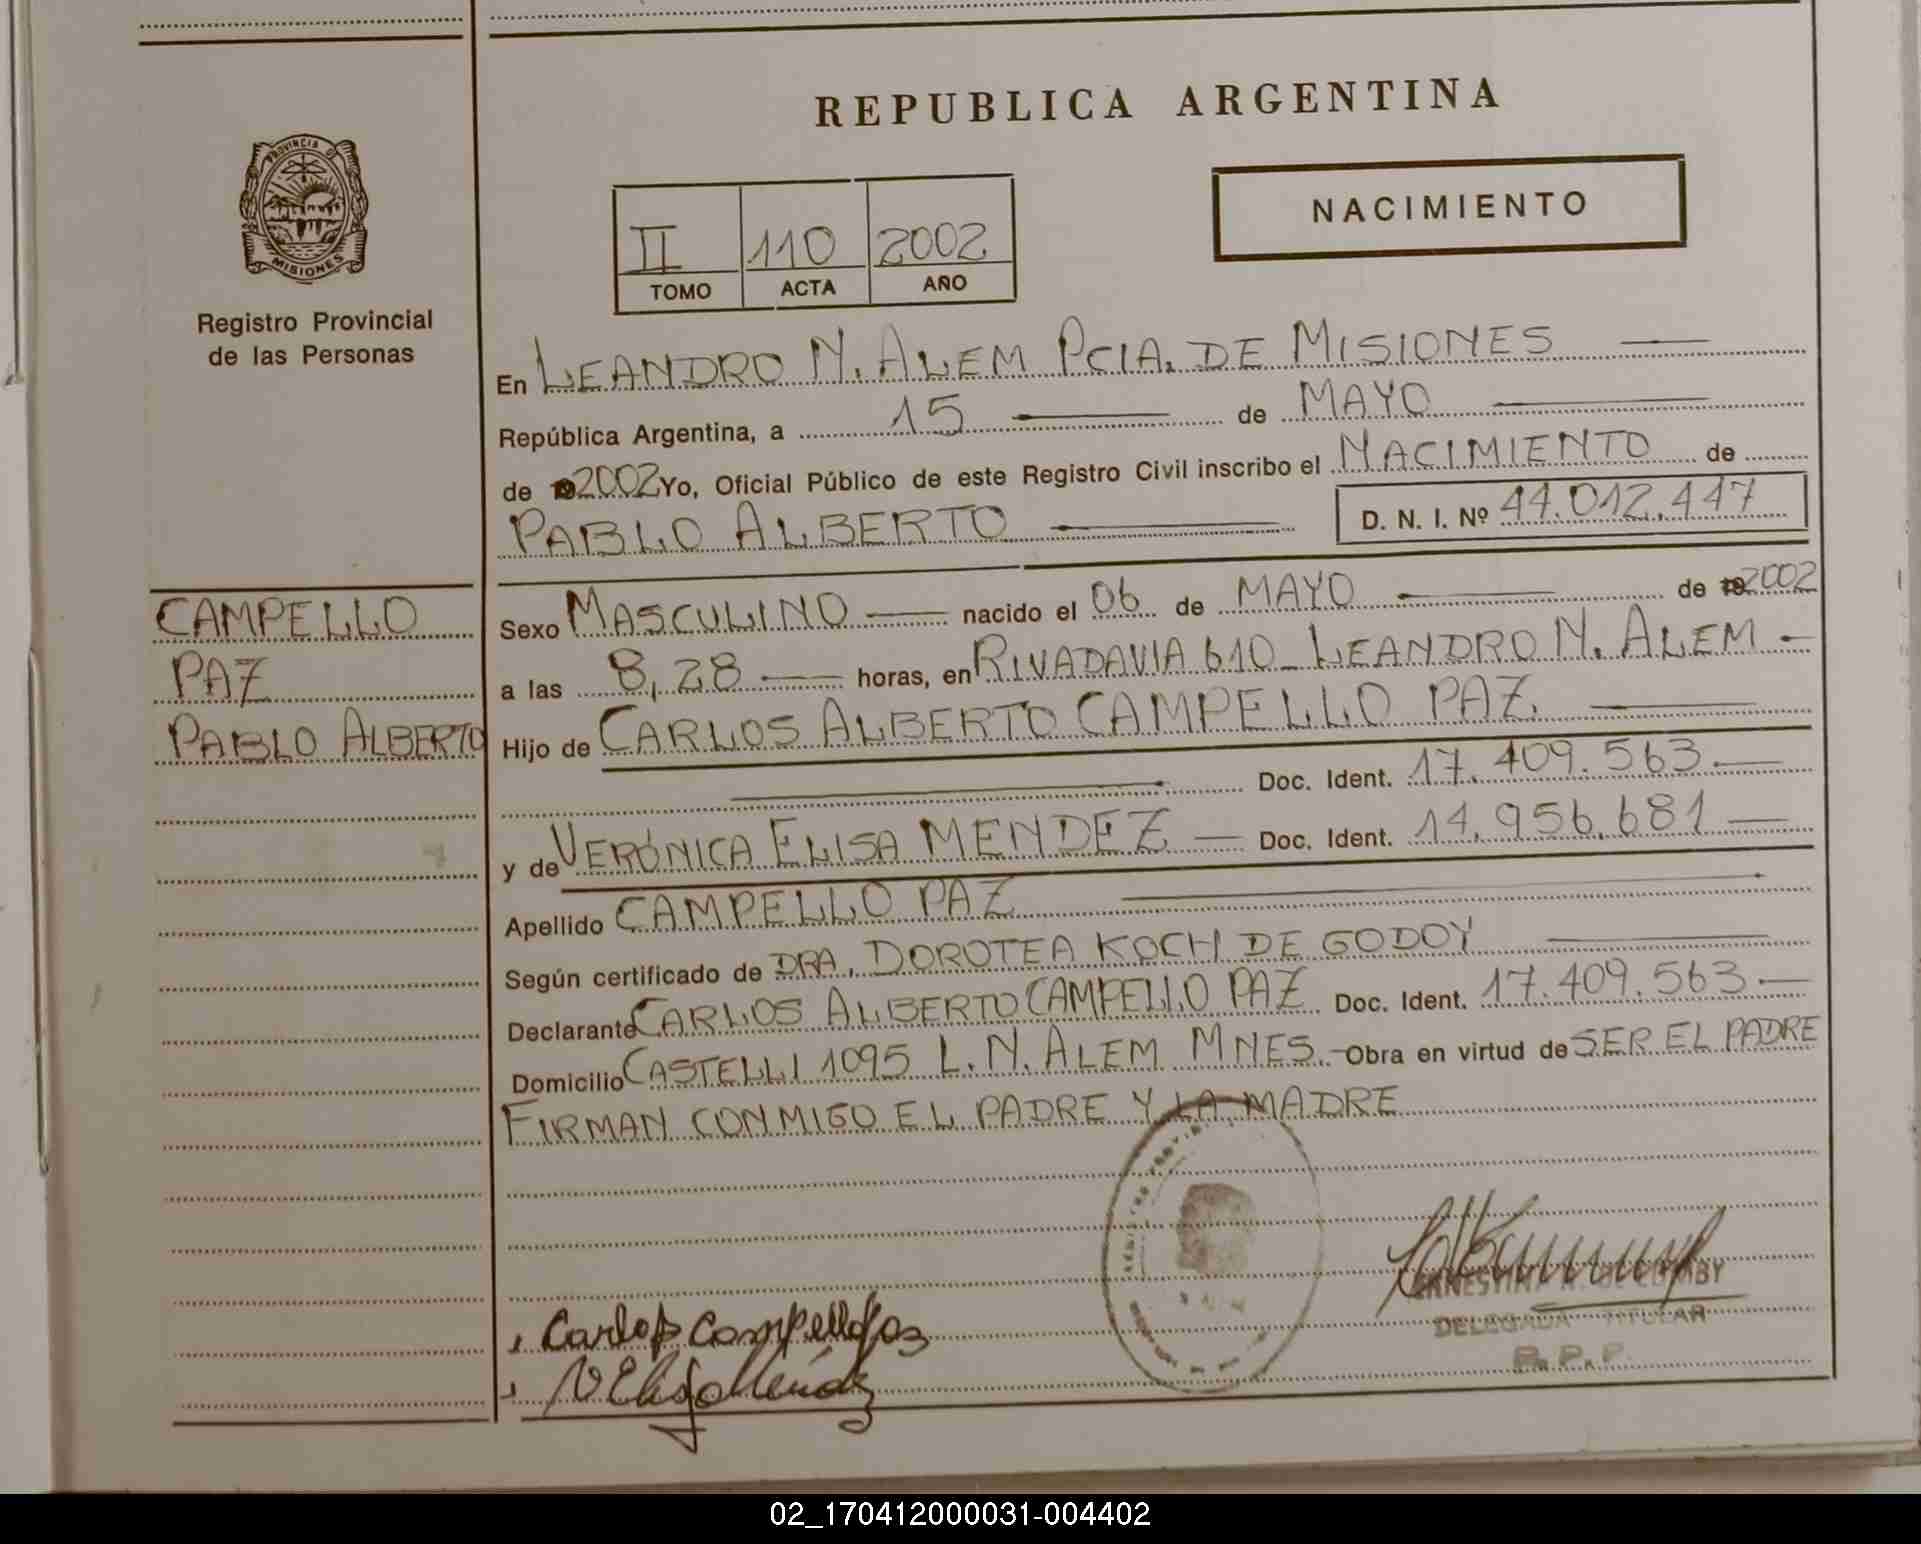 REPUBLICA ARGENTINA
PROVINCIA D
MISIONES
Registro Provincial
de las Personas
NACIMIENTO
II 110 2002
TOMO ACTA AÑO
En LEANDRO N. ALEM PCIA. DE MISIONES
República Argentina, a 15 de MAYO
de 2002 Yo, Oficial Público de este Registro Civil inscribo el NACIMIENTO de
PABLO ALBERTO D. N. I. Nº 44.012.447
CAMPELLO
PAZ
PABLO ALBERTO
Sexo MASCULINO nacido el 06 de MAYO de 2002
a las 8,28 horas, en RIVADAVIA 610 - LEANDRO N. ALEM -
Hijo de CARLOS ALBERTO CAMPELLO PAZ
Doc. Ident. 17.409.563
y de VERÓNICA ELISA MENDEZ Doc. Ident. 14.956.681
Apellido CAMPELLO PAZ
Según certificado de DRA. DOROTEA KOCH DE GODOY
Declarante CARLOS ALBERTO CAMPELLO PAZ Doc. Ident. 17.409.563
Domicilio CASTELLI 1095 L.N. ALEM MNES. - Obra en virtud de SER EL PADRE
FIRMAN CONMIGO EL PADRE Y LA MADRE
DELEGADA TITULAR
R.P.P.
Carlos Campello Paz
V Elisa Méndez
02_170412000031-004402